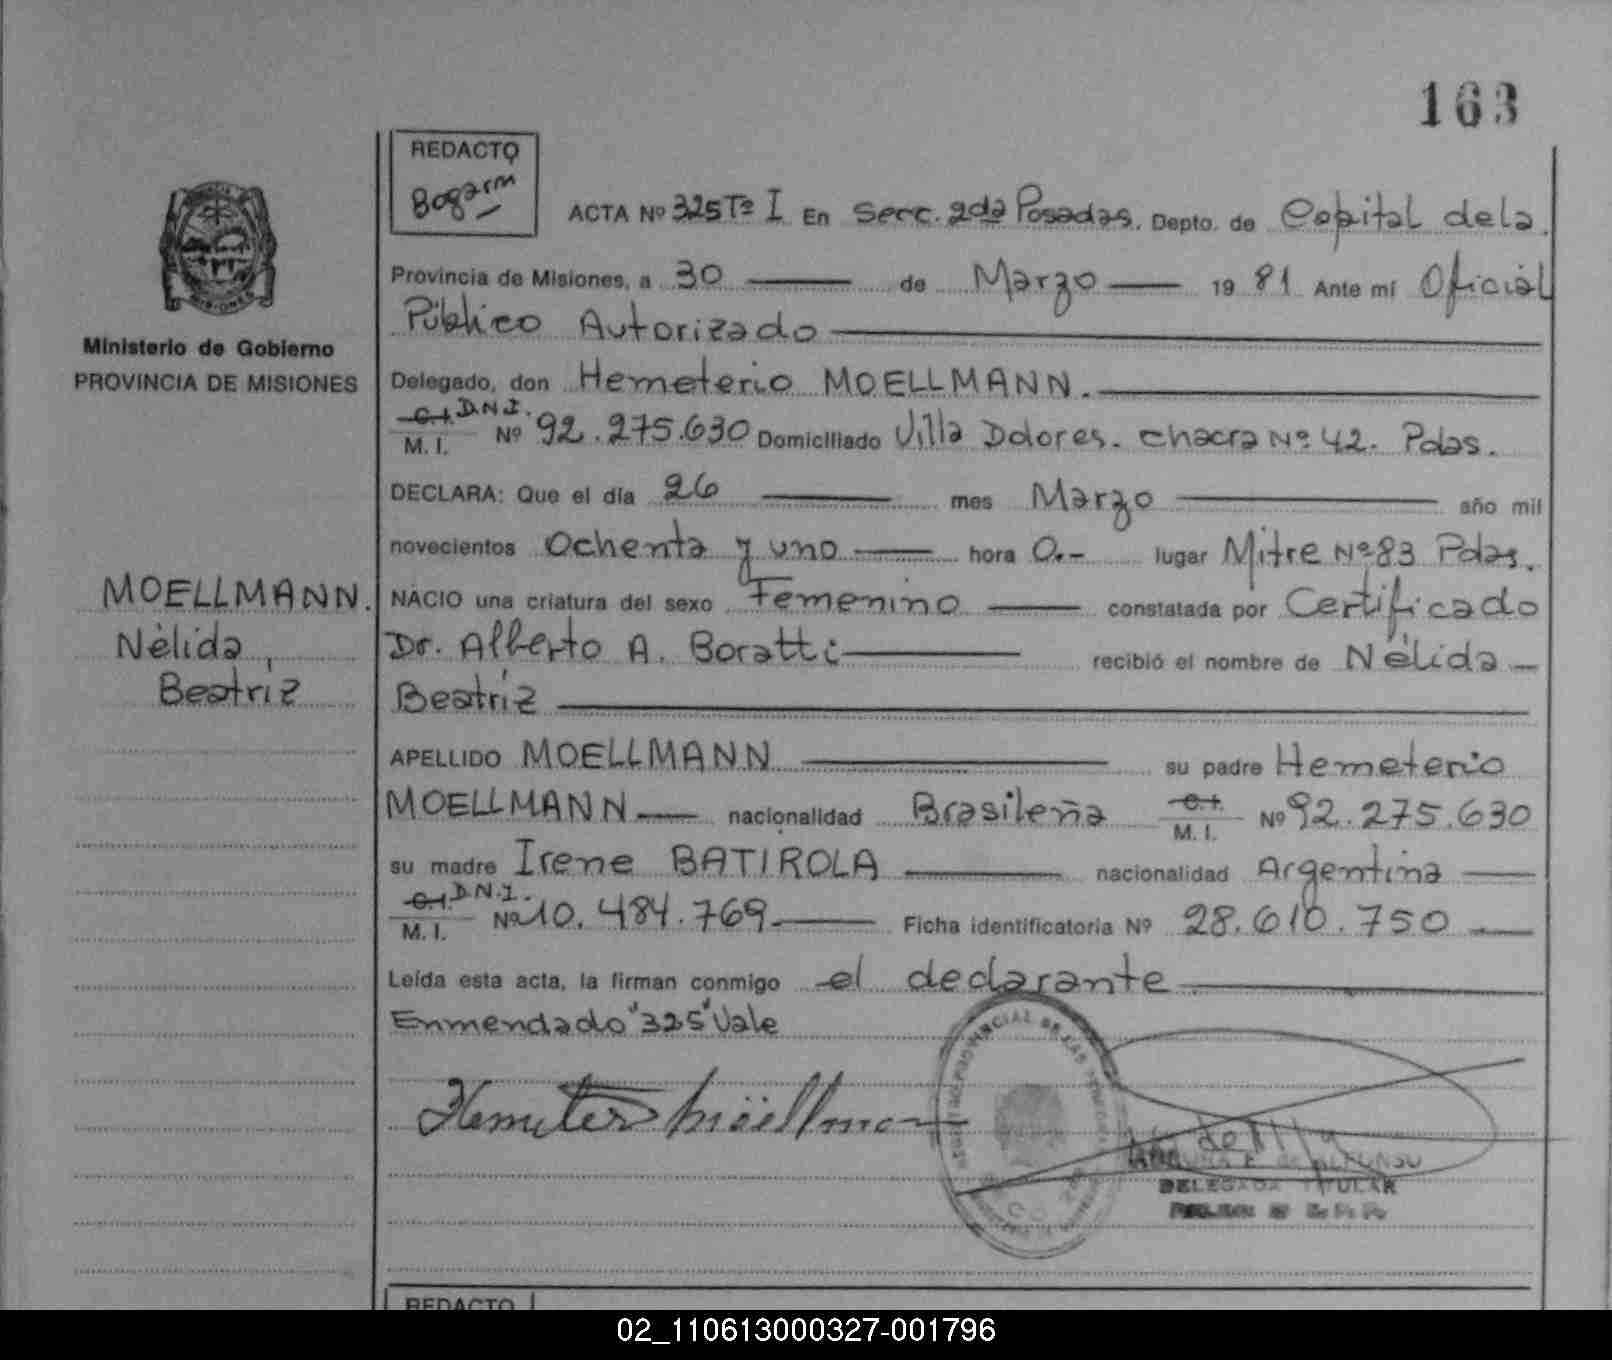 163
REDACTO
Bogarm
ACTA Nº 325 Tº I En Secc. 2da Posadas. Depto. de Capital de la
Provincia de Misiones, a 30 de Marzo 1981 Ante mi Oficial
Público Autorizado
Ministerio de Gobierno
PROVINCIA DE MISIONES
Delegado, don Hemeterio MOELLMANN.
C.I. D.N.I.
M. I. Nº 92.275.630 Domiciliado Villa Dolores. chacra Nº 42. Pdas.
DECLARA: Que el día 26 mes Marzo año mil
novecientos Ochenta y uno hora 0.- lugar Mitre Nº 83 Pdas.
MOELLMANN.
Nélida,
Beatriz
NACIO una criatura del sexo Femenino constatada por Certificado
Dr. Alberto A. Boratti recibió el nombre de Nélida
Beatriz
APELLIDO MOELLMANN su padre Hemeterio
MOELLMANN nacionalidad Brasileña C.I. M. I. Nº 92.275.630
su madre Irene BATIROLA nacionalidad Argentina
C.I. D.N.I.
M. I. Nº 10.484.769 Ficha identificatoria Nº 28.610.750
Leída esta acta, la firman conmigo el declarante
Enmendado "325" Vale
Hemeter Möellman
DELEGADA TITULAR
REDACTO
02_110613000327-001796